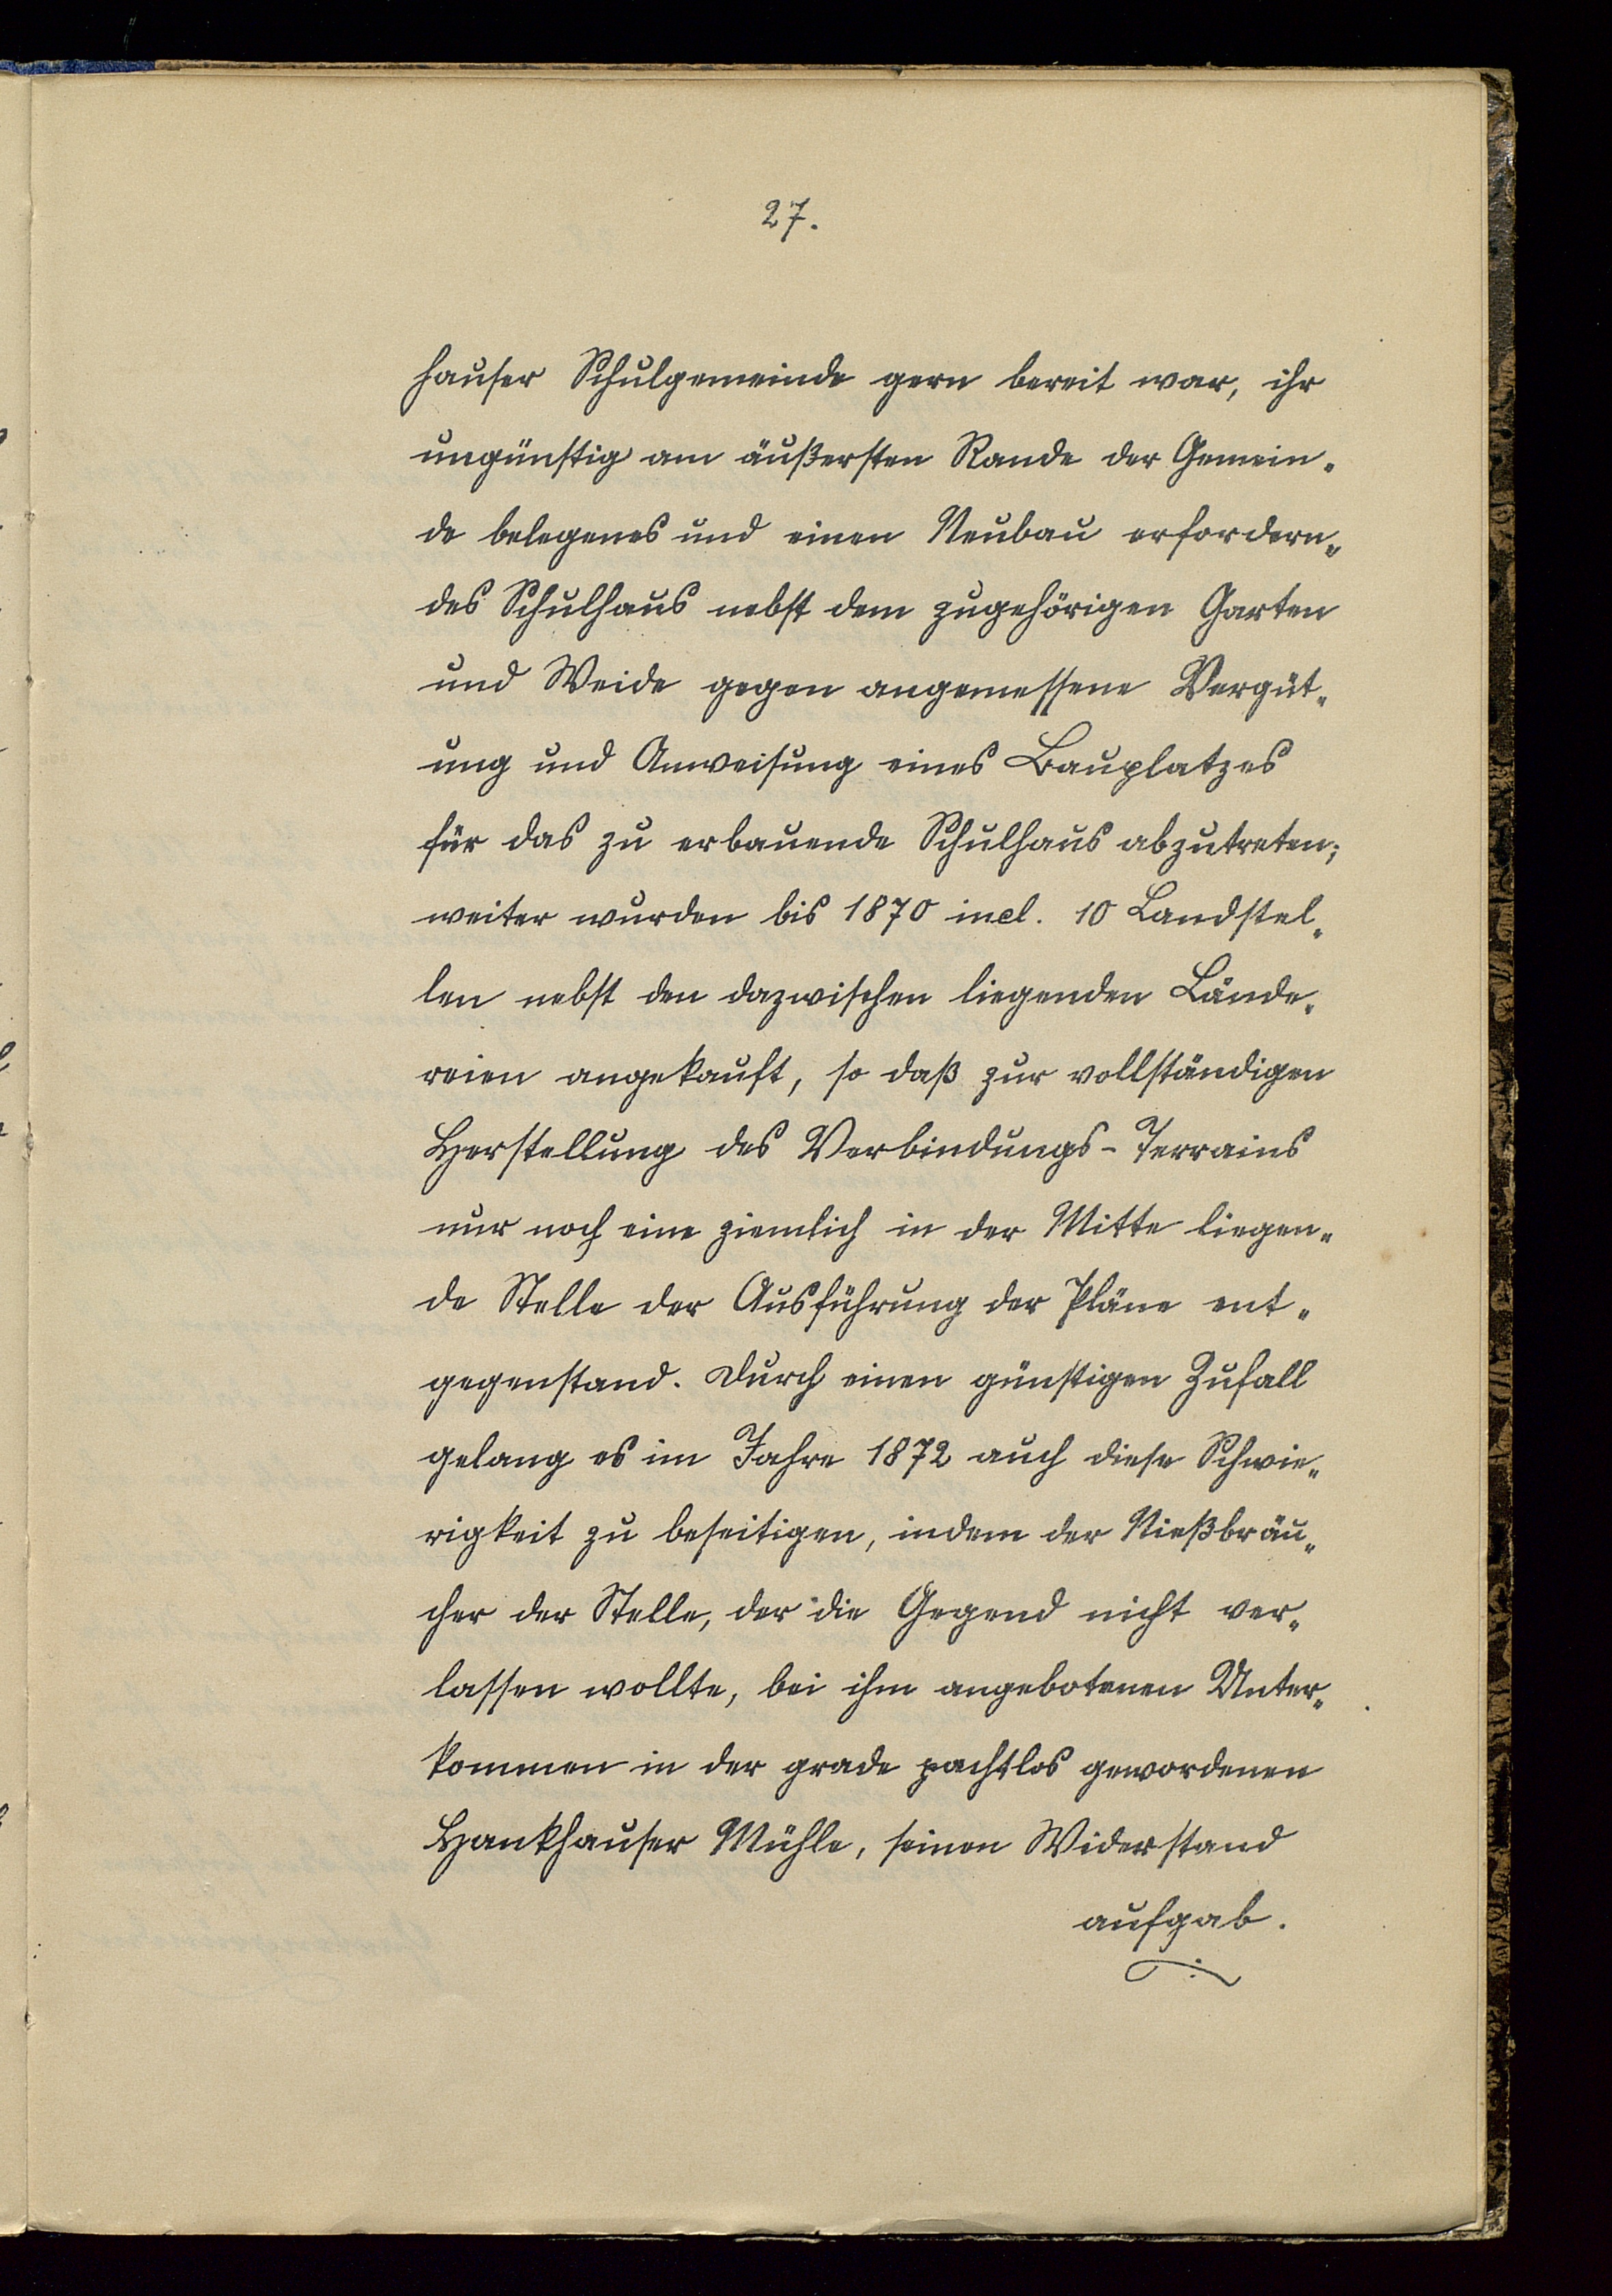 27.
hauser Schulgemeinde gern bereit war, ihr
ungünstig am äußersten Rande der Gemein-
de belegenes und einen Neubau erfordern-
des Schulhaus nebst dem zugehörigen Garten
und Weide gegen angemessene Vergüt-
ung und Anweisung eines Bauplatzes
für das zu erbauende Schulhaus abzutreten;
weiter wurden bis 1870 incl. 10 Landstel-
len nebst den dazwischen liegenden Lände-
reien angekauft, so daß zur vollständigen
Herstellung des Verbindungs-Terrains
nur noch eine ziemlich in der Mitte liegen-
de Stelle der Ausführung der Pläne ent-
gegenstand. Durch einen günstigen Zufall
gelang es im Jahre 1872 auch diese Schwie-
rigkeit zu beseitigen, indem der Nießbräu-
cher der Stelle, der die Gegend nicht ver-
lassen wollte, bei ihm angebotenen Unter-
kommen in der grade pachtlos gewordenen
Hankhauser Mühle, seinen Widerstand
aufgab.